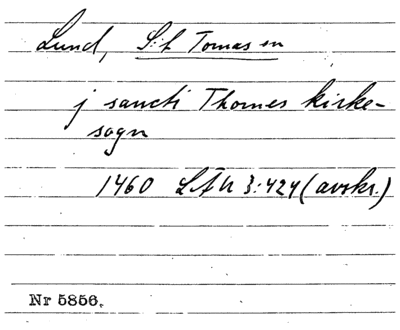 Lund, S:t Tomas sn
j sancti Thomes kirke-
sogn
1460 LÄU 3:424 (avskr.)
Nr 5856.